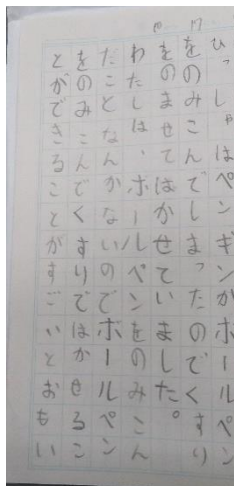 ひっしゃはペンギンがボールペン
をのみこんでしまったのでくすり
をのませてはかせていました。
わたしは、ボールペンをのみこん
だことなんかないのでボールペン
をのみこんでくすりではかせるこ
とができることがすごいとおもい